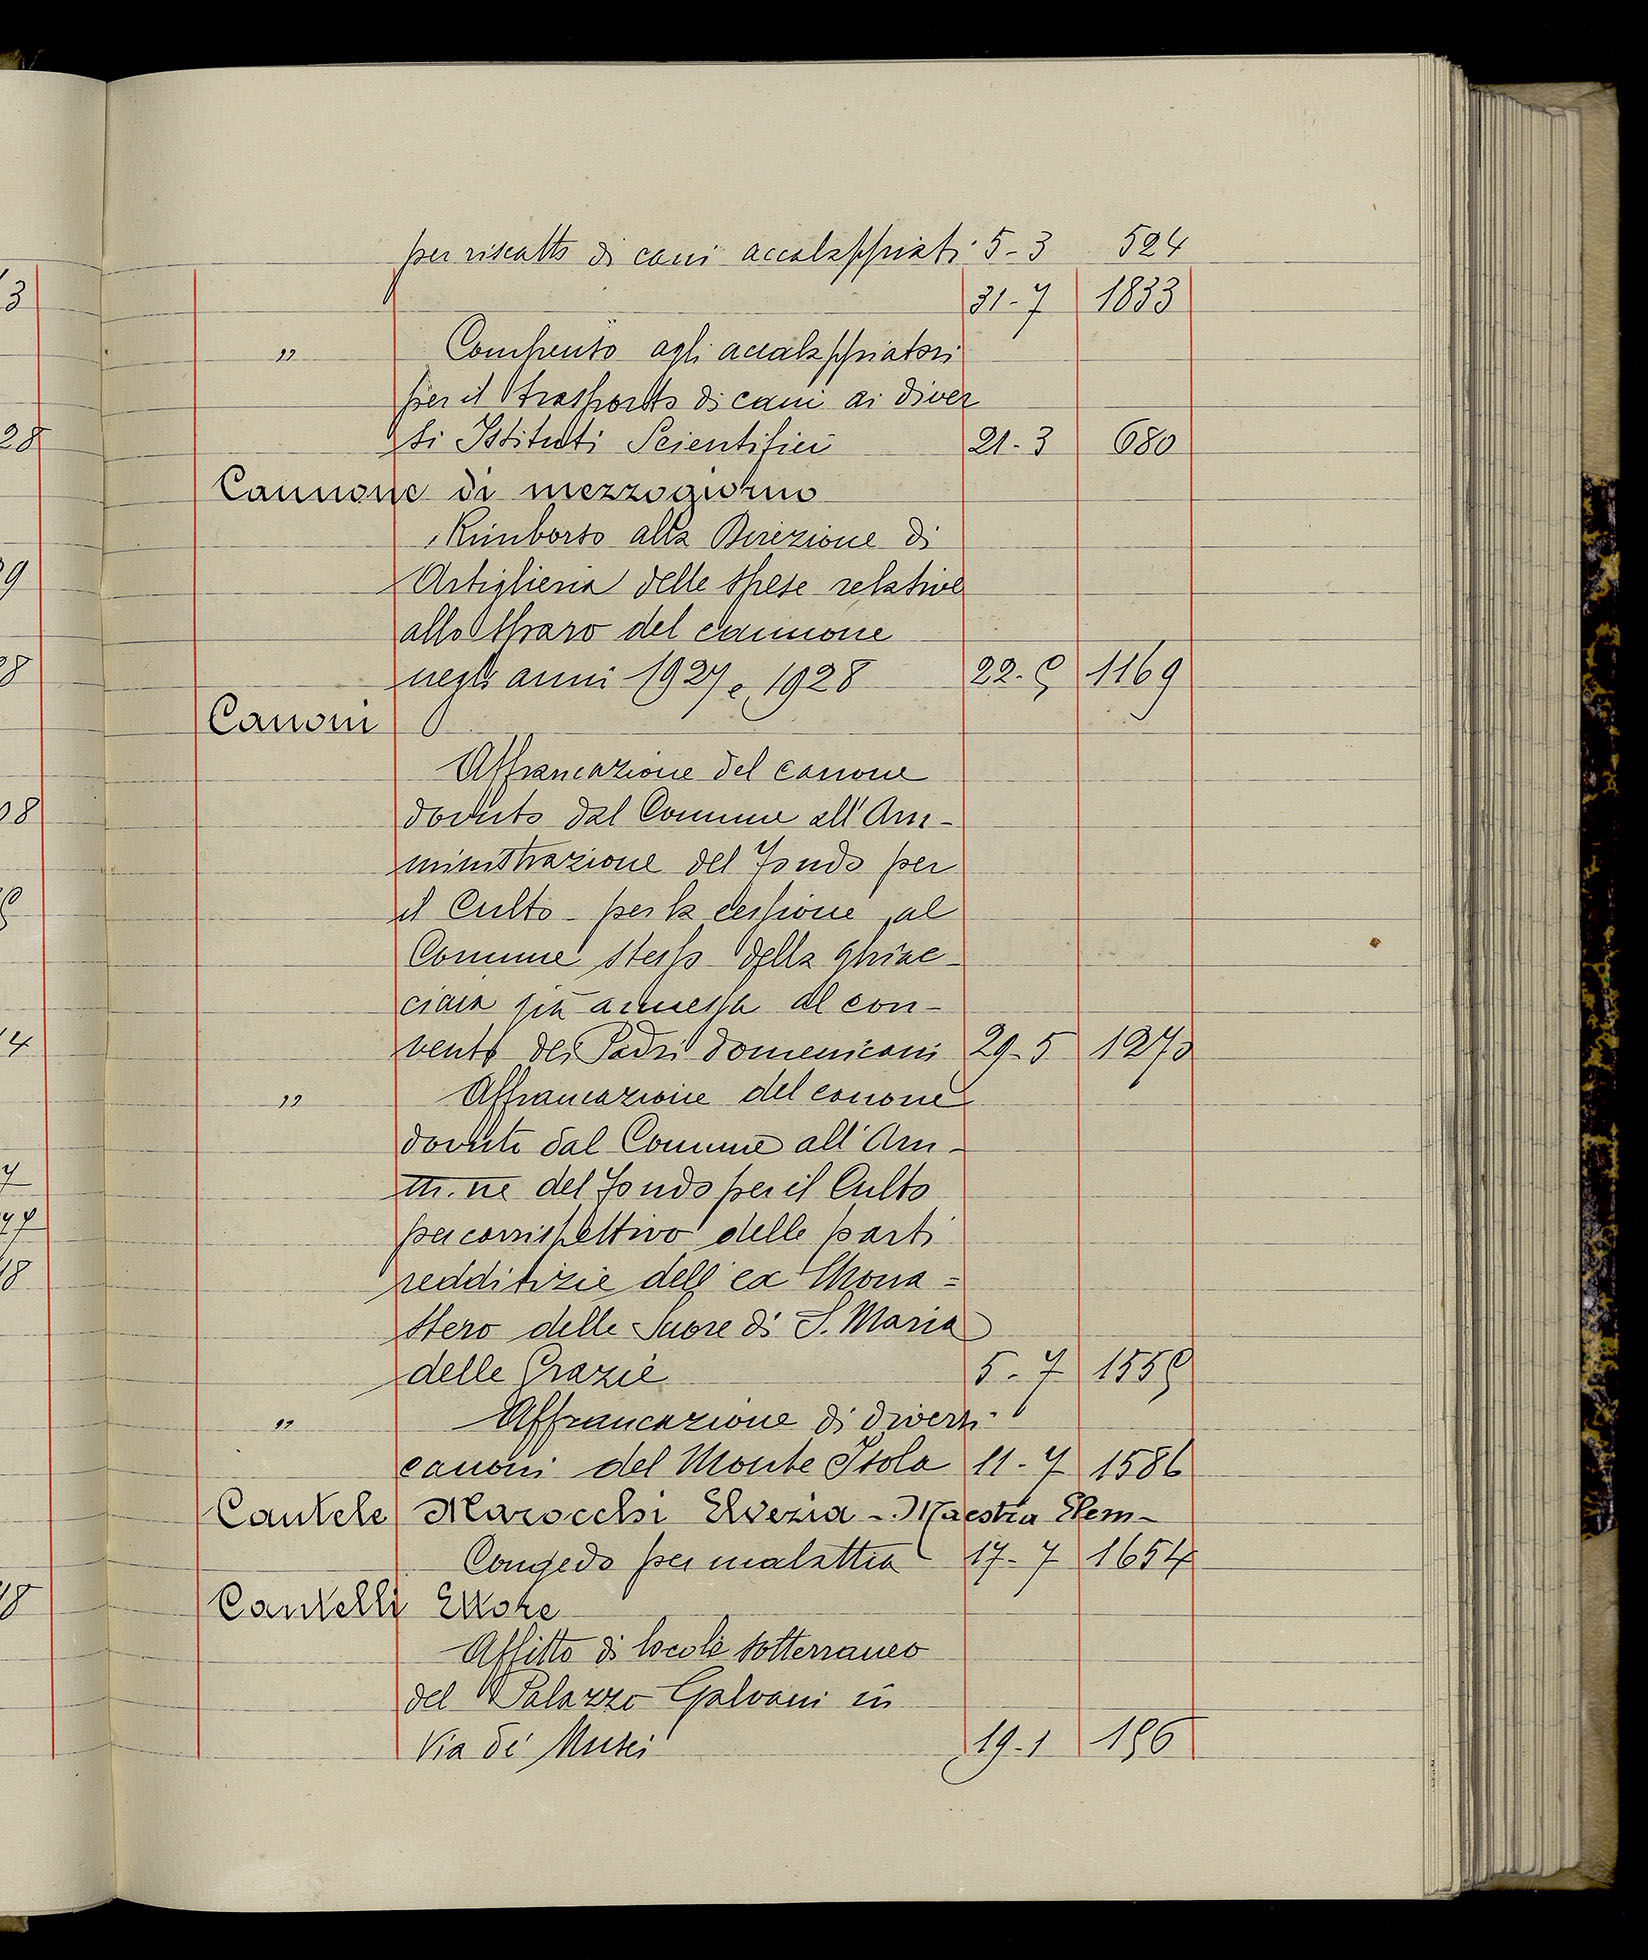 per riscatto di cani accalappiati 5-3 524
31-7 1833
" Compenso agli accalappiatori
per il trasporto di cani ai diver
si Istituti Scientifici 21-3 680
Cannone di mezzogiorno
Rimborso alla Direzione di
Artiglieria delle spese relative
allo sparo del cannone
negli anni 1927 e 1928 22-5 1169
Canoni
Affrancazione del canone
dovuto dal Comune all'Am-
ministrazione del Fondo per
il Culto per la cessione al
Comune stesso della ghiac-
ciaia già annessa al con-
vento dei Padri Domenicani 29-5 1270
" Affrancazione del canone
dovuto dal Comune all'Am-
m.ne del Fondo per il Culto
per corrispettivo delle parti
redditizie dell'ex Mona=
stero delle Suore di S. Maria
delle Grazie 5-7 1555
" Affrancazione di diversi
canoni del Monte Isola 11-7 1586
Cantele Marocchi Elvezia - Maestra Elem-
Congedo per malattia 17-7 1654
Cantelli Ettore
Affitto di locale sotterraneo
del Palazzo Galvani in
Via de' Musei 19-1 156
3
28
9
8
08
5
4
7
77
18
18